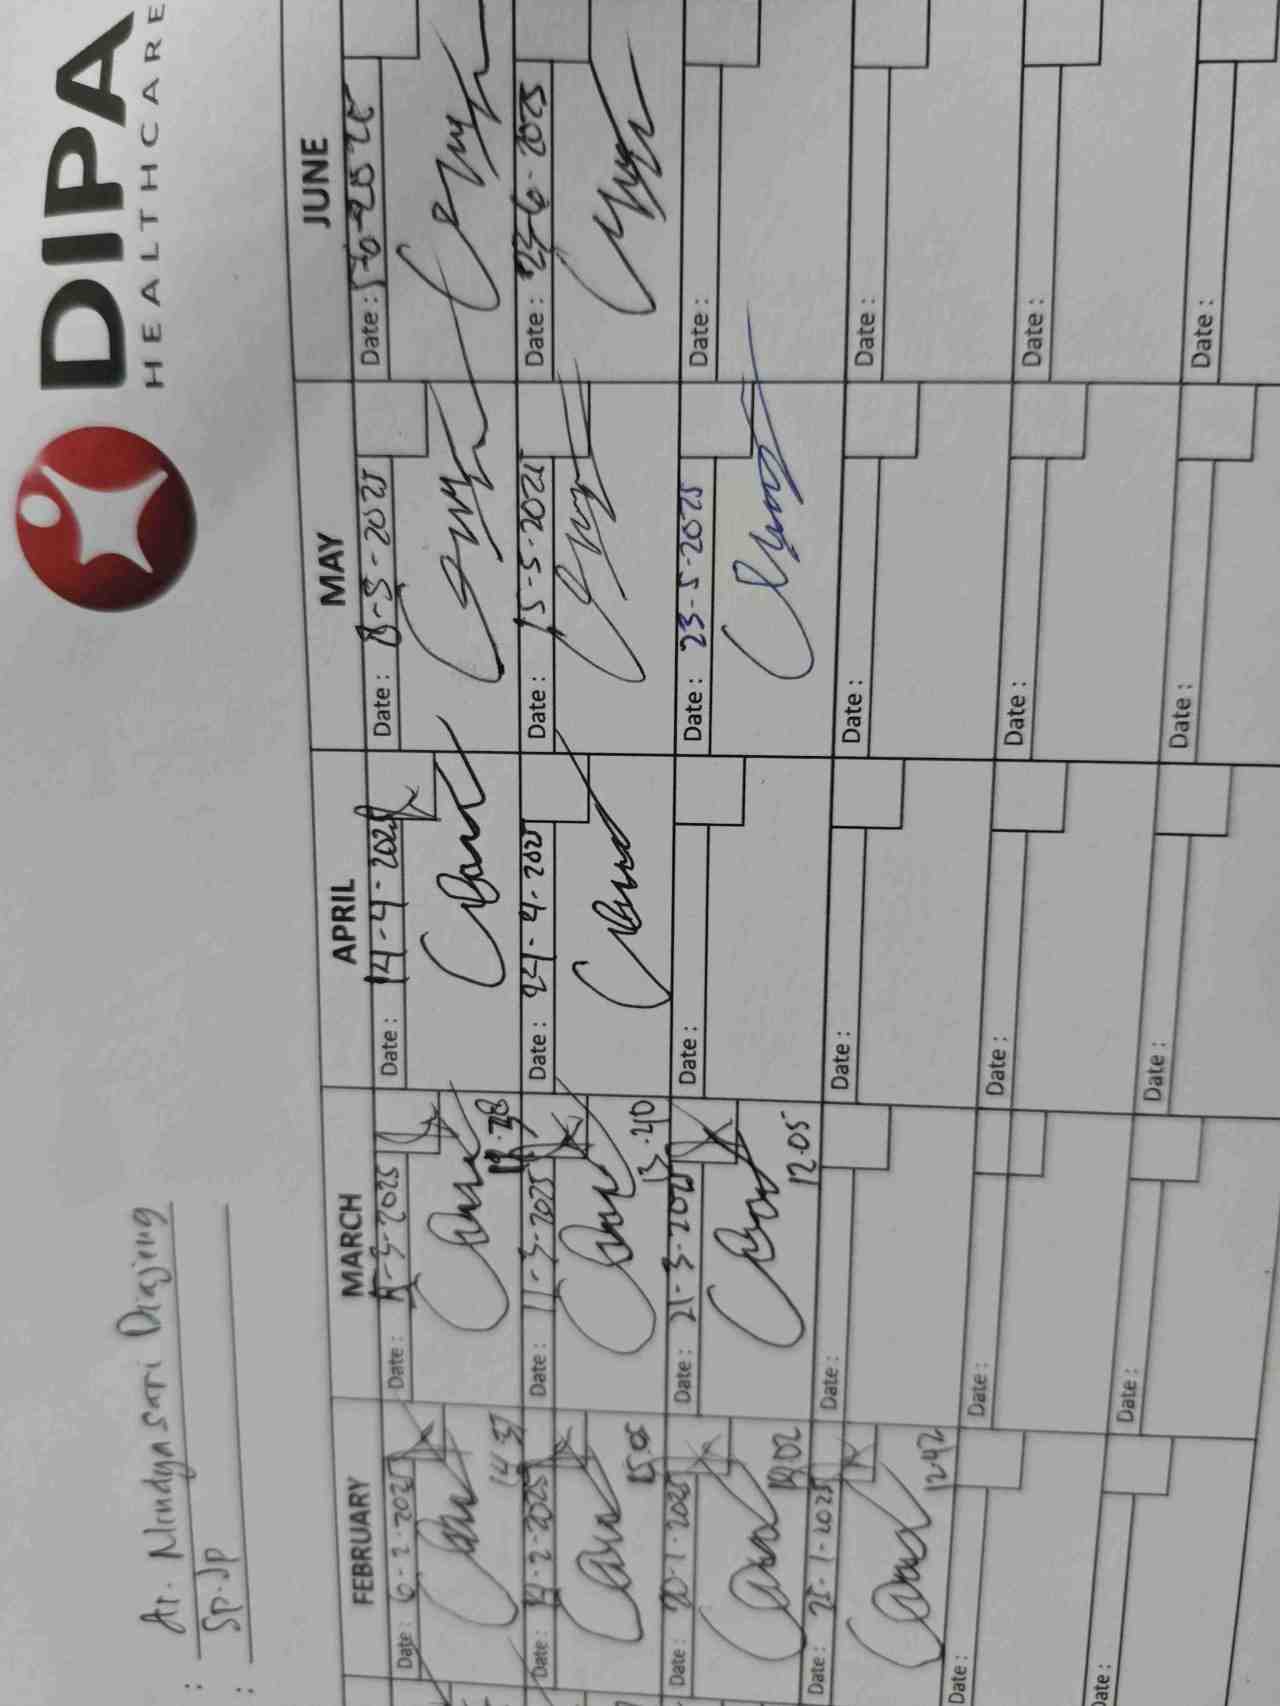 DIPA
HEALTHCARE
: dr. Nindya Sari Diajeng
: Sp.JP
FEBRUARY MARCH APRIL MAY JUNE
Date : 6-2-2025 Date : Date : 14-4-2025 Date : 8-5-2025 Date : 5-6-2025
14 37
Date : Date : 11-3-2025 Date : 24-4-2025 Date : 15-5-2025 Date : 23-6-2025
15.05 13.40
Date : 20-1-2025 Date : 21-3-2025 Date : Date : 23-5-2025 Date :
12.05
Date : 25-1-2025 Date : Date : Date : Date :
12.42
Date : Date : Date : Date : Date :
Date : Date : Date : Date : Date :